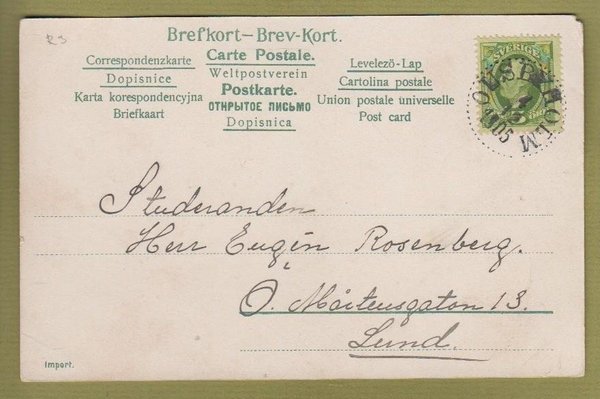 R3
Brefkort–Brev-Kort.
Correspondenzkarte
Dopisnice
Karta korespondencyjna
Briefkaart
Carte Postale.
Weltpostverein
Postkarte.
ОТКРЫТОЕ ПИСЬМО
Dopisnica
Levelezö-Lap
Cartolina postale
Union postale universelle
Post card
SVERIGE
1905
Studeranden
Herr Eugén Rosenberg.
Ö. Mårtensgatan 13.
Lund.
Import.